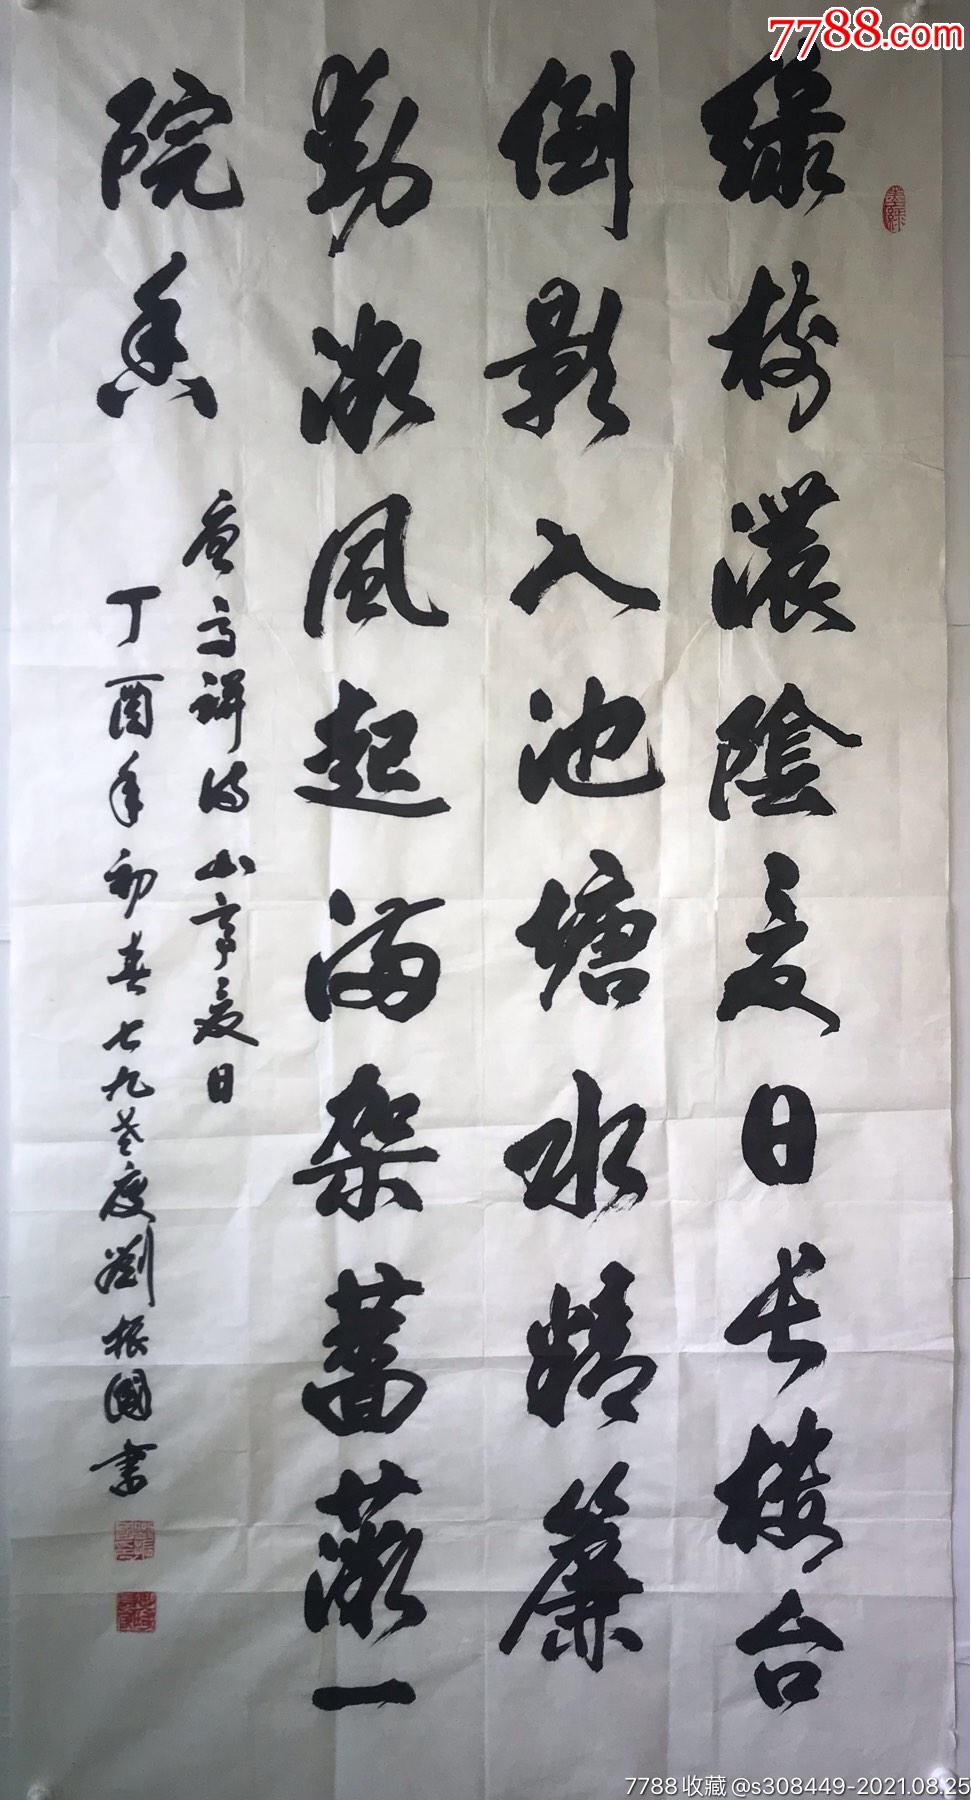 7788.com
绿树浓阴夏日长楼台
倒影入池塘水精簾
動微风起满架蔷薇一
院香
唐高骈诗山亭夏日
丁酉年初春七九老度劉根國書
7788收藏@s308449-2021.08.25